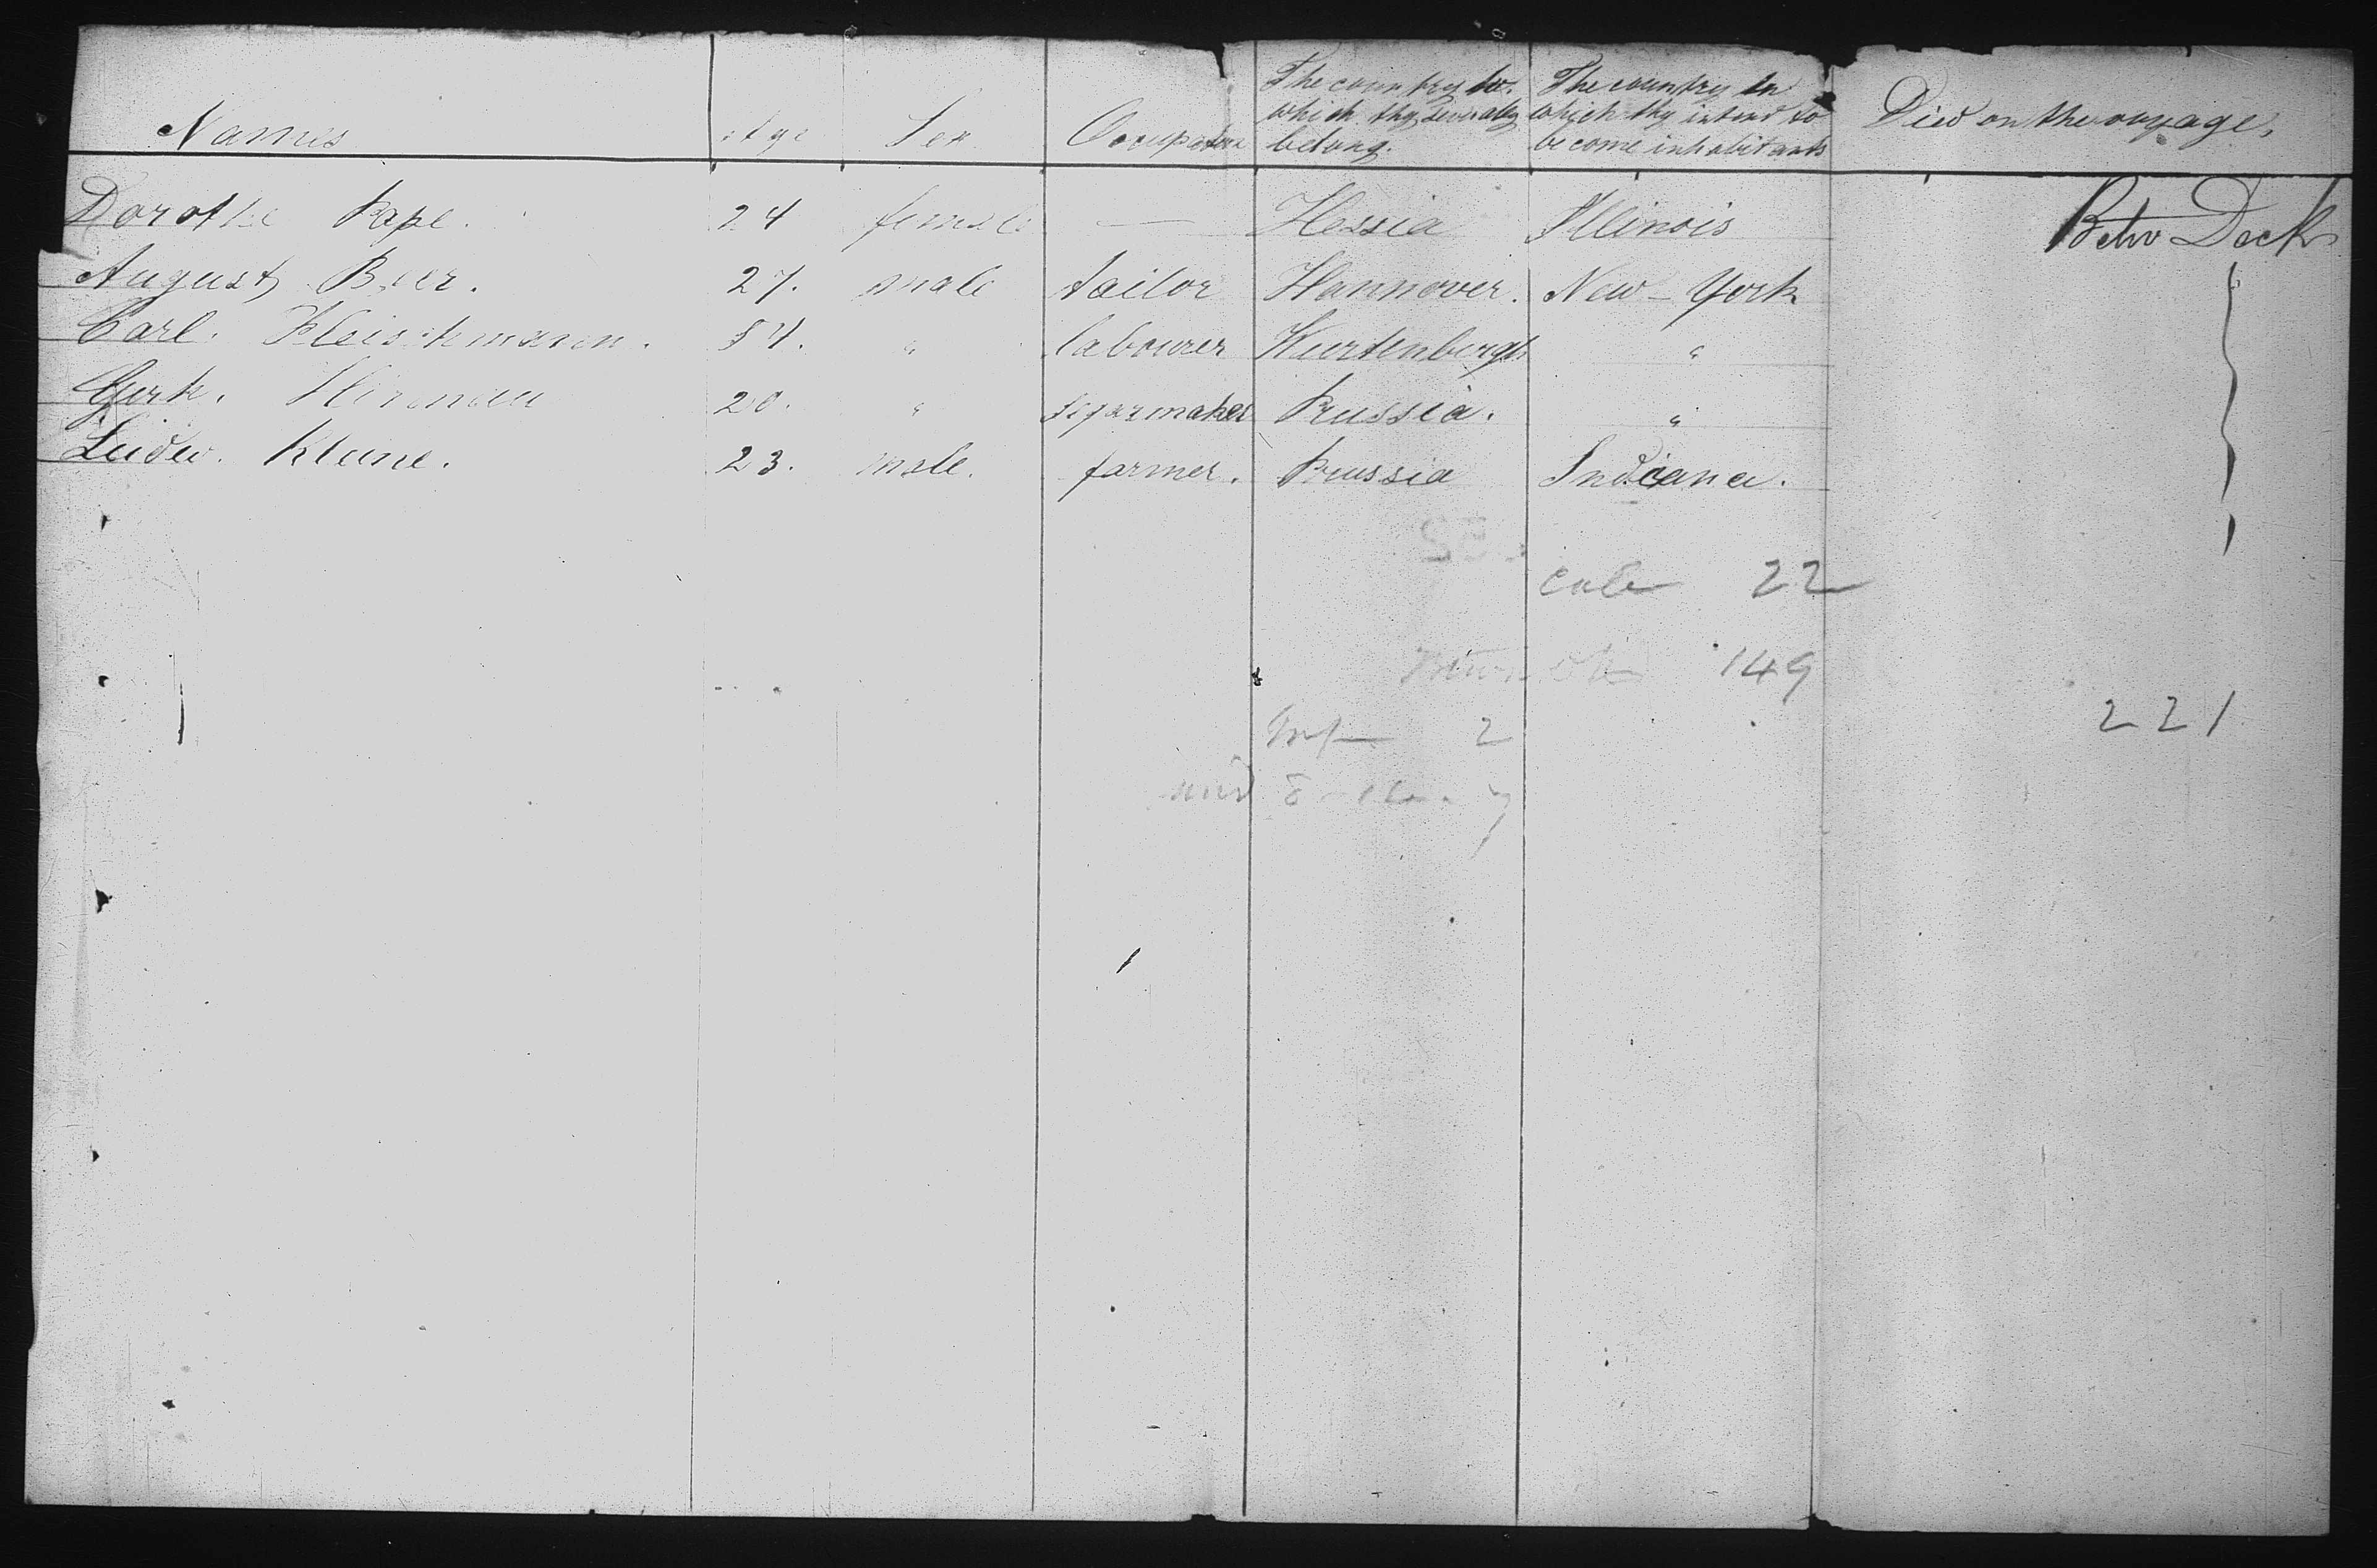 Names Age Sex Occupation The country to which they severally belong. The country in which they intend to become inhabitants Died on the voyage.
Dorothe Pape. 24 female — Hessia Illinois Betw Deck
August Beer. 27. male tailor Hannover. New-York
Carl. Fleischmann. 54. " labourer Wurtenbergh "
20. " segarmaker Prussia. "
Ludew. Kleine. 23. male. farmer. Prussia Indiana.
22
149
221
2